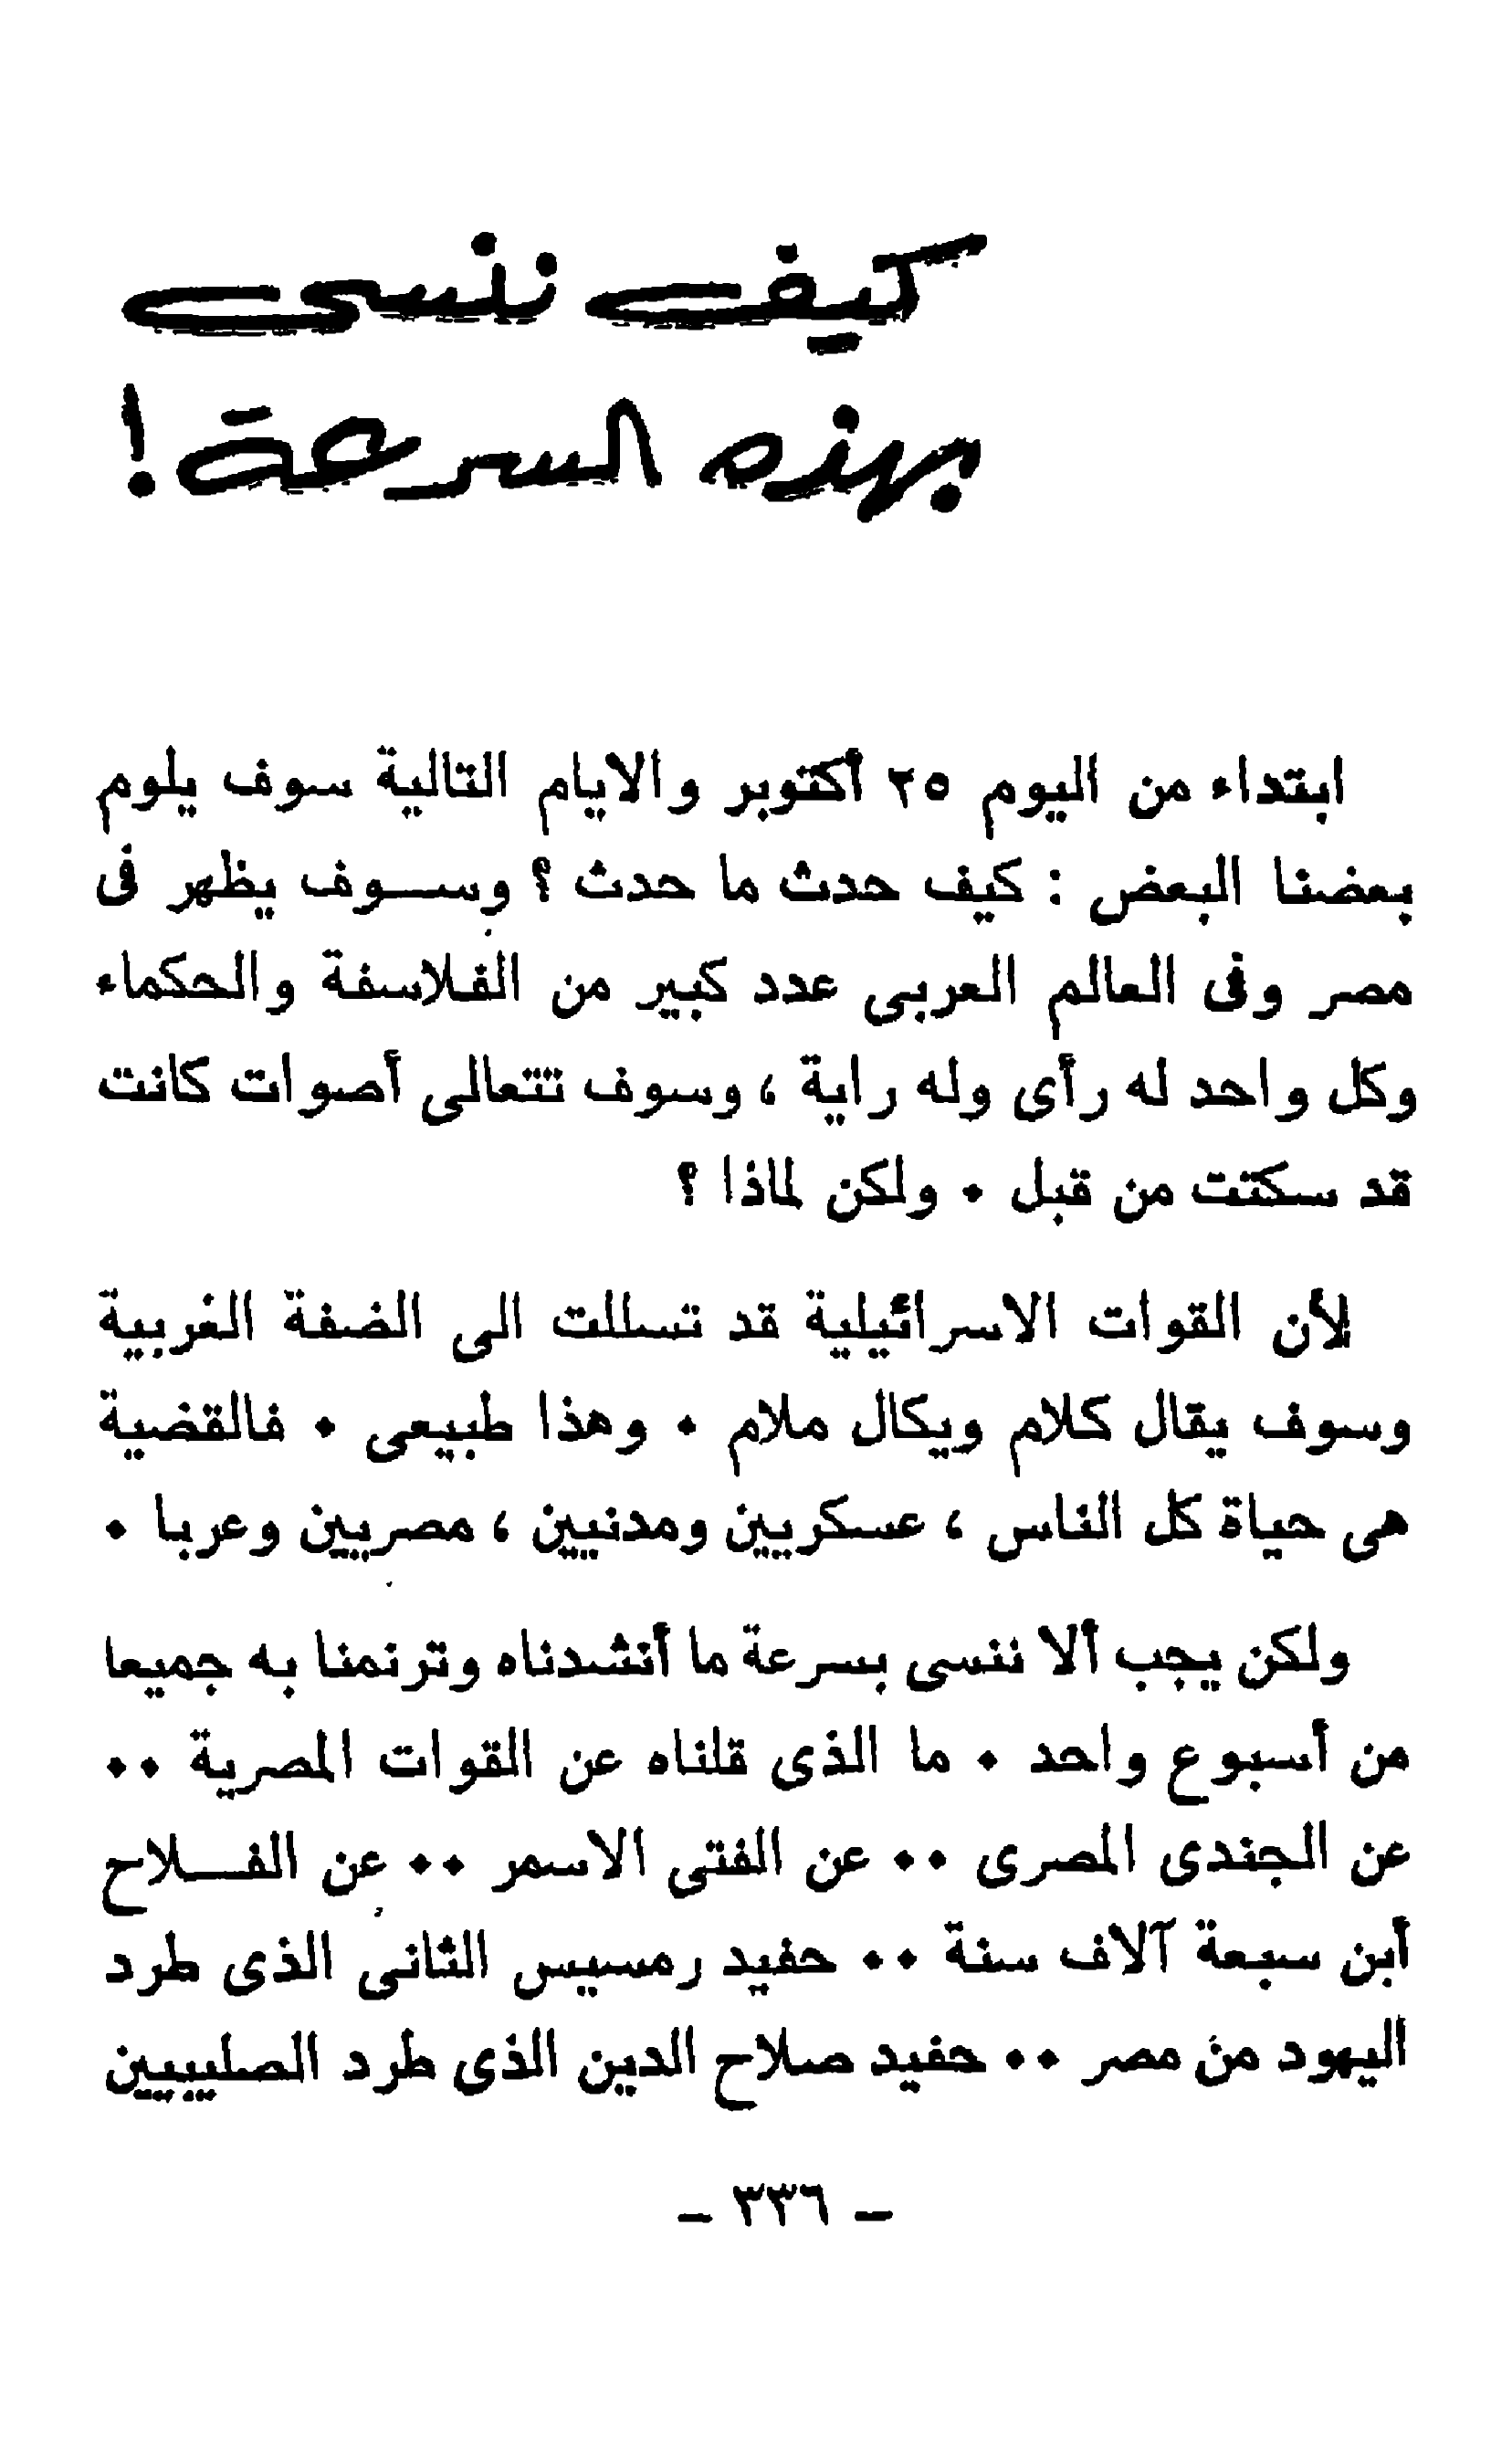 كيف ننسى
بهذه السرعة !
ابتداء من اليوم ٢٥ أكتوبر والايام التالية سوف يلوم
بعضنا البعض : كيف حدث ما حدث ؟ وسـوف يظهر فى
مصر وفى العالم العربى عدد كبير من الفلاسفة والحكماء
وكل واحد له رأى وله راية ، وسوف تتعالى أصوات كانت
قد سكتت من قبل ٠ ولكن لماذا ؟
لأن القوات الاسرائيلية قد تسللت الى الضفة الغربية
وسوف يقال كلام ويكال ملام ٠ وهذا طبيعى ٠ فالقضية
هى حياة كل الناس ، عسكريين ومدنيين ، مصريين وعربا ٠
ولكن يجب ألا ننسى بسرعة ما أنشدناه وترنمنا به جميعا
من أسبوع واحد ٠ ما الذى قلناه عن القوات المصرية ٠٠
عن الجندى المصرى ٠٠ عن الفتى الاسمر ٠٠ عن الفـلاح
أبن سبعة آلاف سنة ٠٠ حفيد رمسيس الثانى الذى طرد
اليهود من مصر ٠٠ حفيد صلاح الدين الذى طرد الصليبيين
– ٣٣٦ –